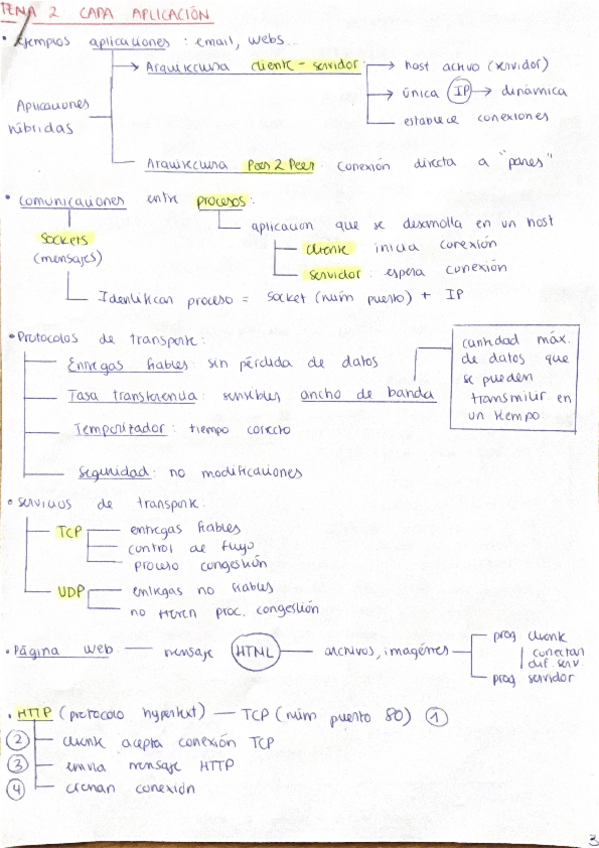 TEMA 2 CAPA APLICACIÓN
• Ejemplos aplicaciones : email, webs...
Arquitectura cliente - servidor
host activo (servidor)
única IP → dinámica
establece conexiones
Aplicaciones híbridas
Arquitectura Peer 2 Peer conexión directa a "pares"
• Comunicaciones entre procesos:
aplicacion que se desarrolla en un host
cliente inicia conexión
servidor : espera conexión
Sockets
(mensajes)
Identifican proceso = socket (núm puerto) + IP
• Protocolos de transporte:
Entregas fiables : sin pérdida de datos
Tasa transferencia : sensibles ancho de banda
cantidad máx.
de datos que
se pueden
transmitir en
un tiempo
Temporizador : tiempo correcto
Seguridad : no modificaciones
• Servicios de transporte:
TCP entregas fiables
control de flujo
proceso congestión
UDP entregas no fiables
no tienen proc. congestión
• Página web — mensaje HTML — archivos, imagénes
prog cliente
conectan
dif. serv.
prog servidor
• HTTP (protocolo hypertext) — TCP (núm puerto 80) 1
2 cliente acepta conexión TCP
3 envía mensaje HTTP
4 cierran conexión
3